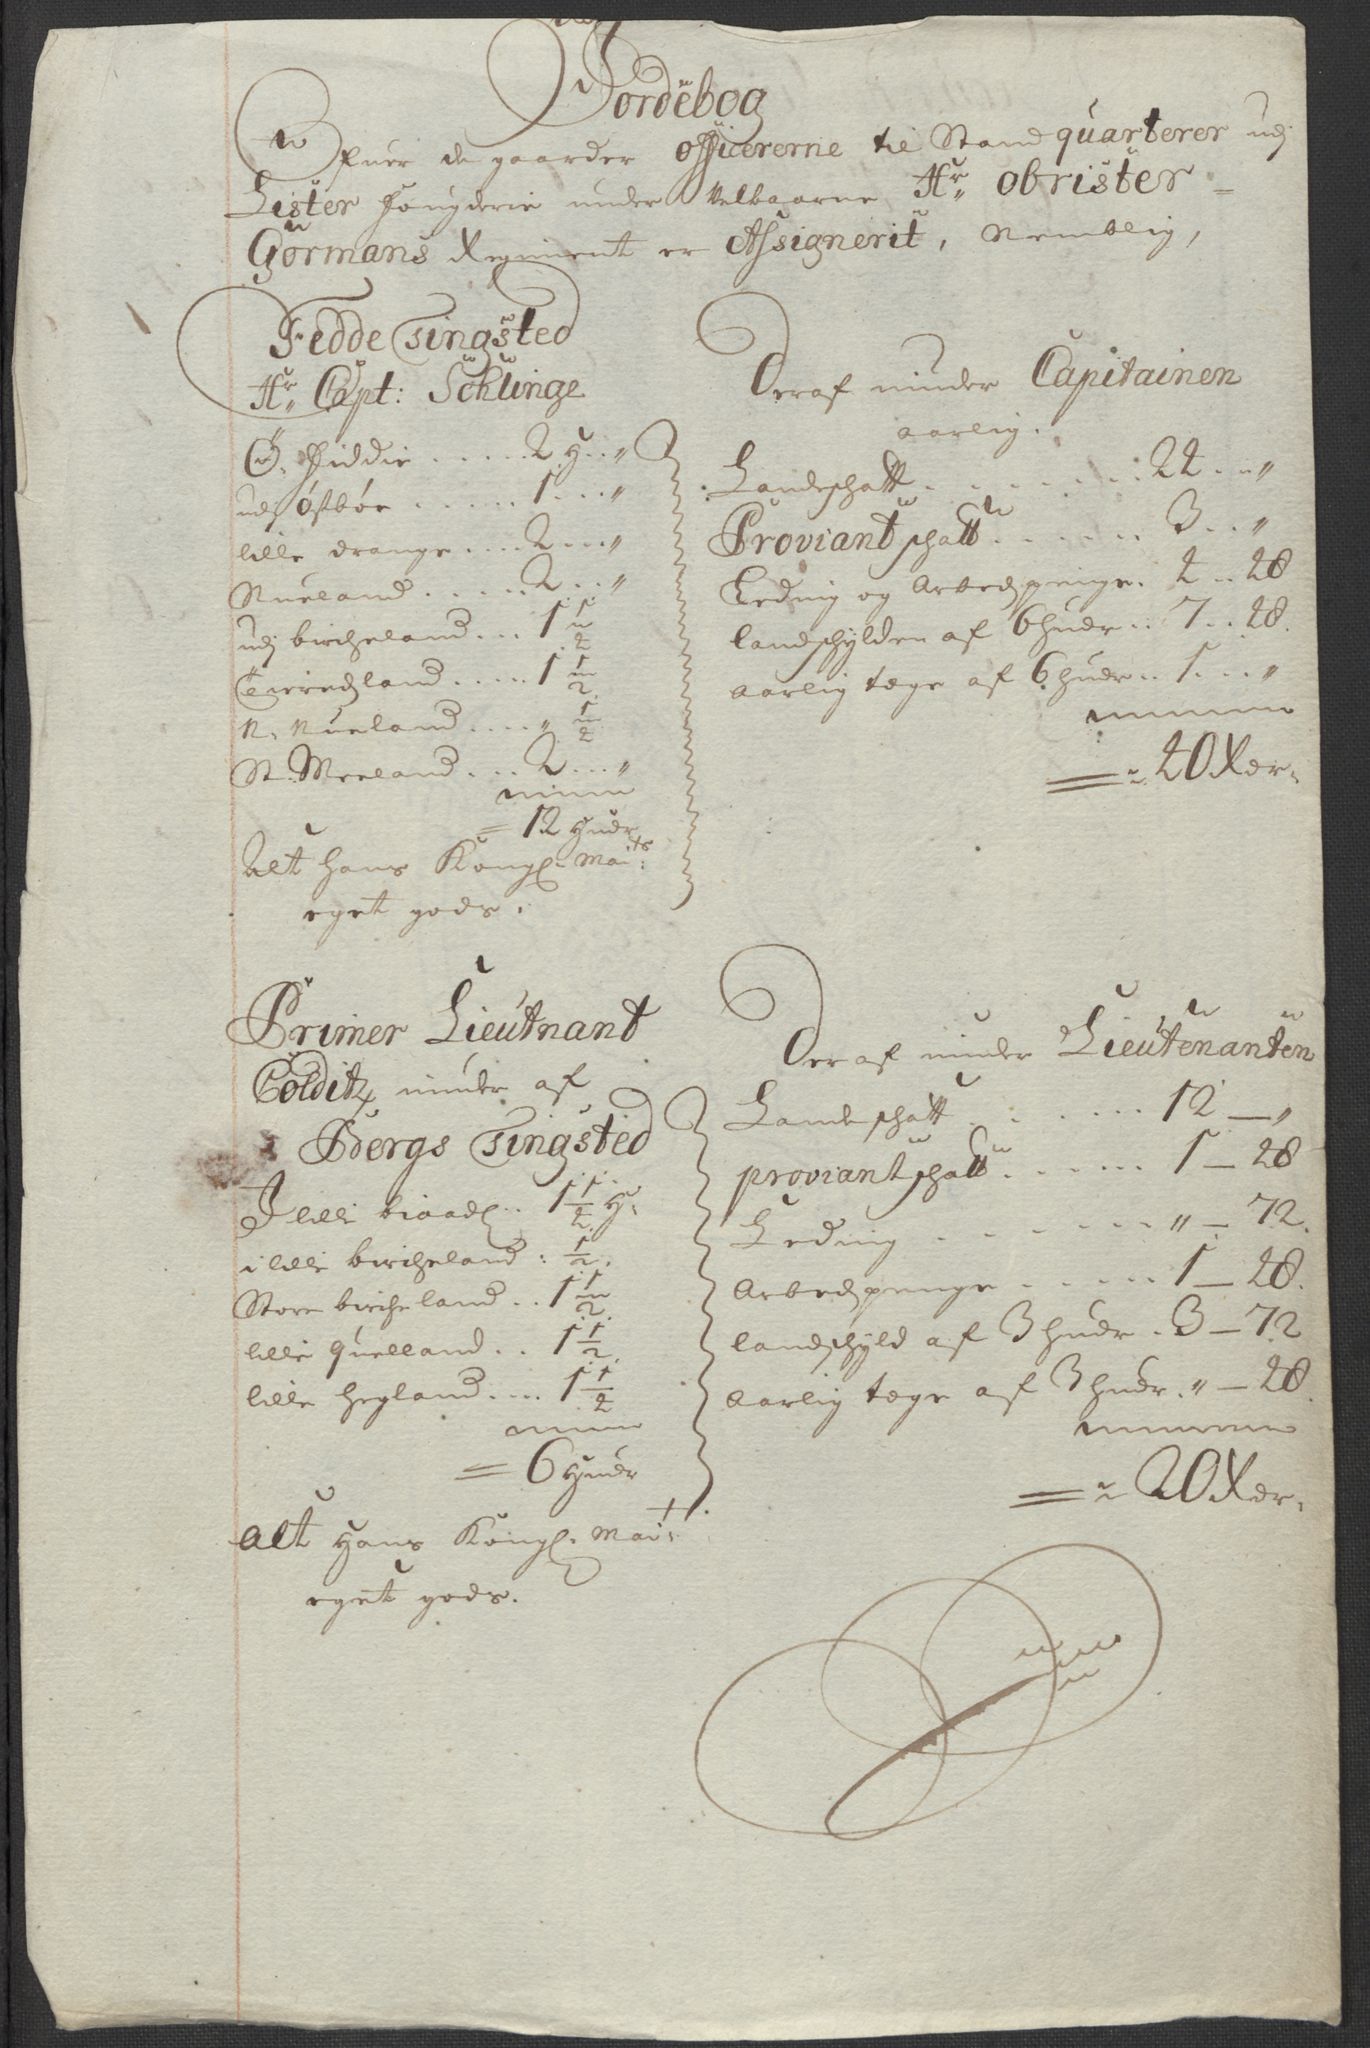 Jordebog
Ofuer de gaarder officererne til Stand quarterer udj
Lister fougderie under Velbaarne Hr. Obrister
Gormans Regiment er Assignerit, Nemblig,
Fedde Tingsted
Hr. Capt: Schlinge
Ø. Fidde ..... 2 H.. "
udj Østbøe ..... 1 ... "
lille drange .... 2 ... "
Nueland ..... 2 ... "
udj bircheland ... 1 1/2
..... 1 1/2
N. Nueland .... " 1/2
St. Meeland ... 2 ... "
= 12 Huder
Alt Hans Kongl. Maits:
eget gods.
Deraf nyder Capitainen
aarlig.
Landschatt ....... 24 .. "
Proviant schatt ...... 3 .. "
Leding og Arbedspenge. 4 .. 48
landschylden af 6 huder .. 7 .. 48.
aarlig tæge af 6 huder .. 1 ... "
40 Rdr.
Primer Lieutnant
Colditz nyder af
Bergs Tingsted
I lille braadl .. 1 1/2 H.
i lille bircheland : 1/2.
Store bircheland .. 1 1/2
lille quelland .. 1 1/2
lille hegland .... 1 1/2
= 6 Huder
Alt Hans Kongl. Mait:
eget gods.
Deraf nyder Lieutenanten
Landschatt ....... 12 — "
proviant schatt ...... 1 — 48
Leding ....... " — 72.
Arbedspenge ...... 1 — 48.
landschyld af 3 huder . 3 — 72
Aarlig tæge af 3 huder . " — 48.
20 Rdr.